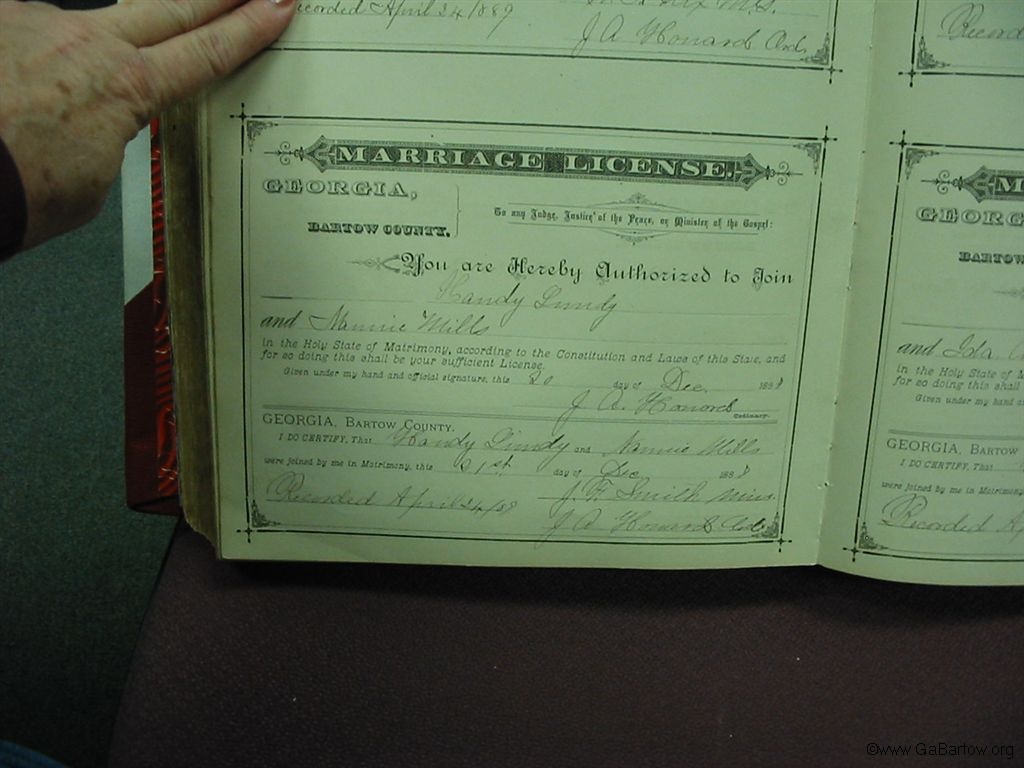 Recorded April 24/1889
J A Howard Ord.
Record
MARRIAGE LICENSE.
GEORGIA,
BARTOW COUNTY.
To any Judge, Justice of the Peace, or Minister of the Gospel:
You are Hereby Authorized to Join
Handy Lundy
and Nannie Mills
in the Holy State of Matrimony, according to the Constitution and Laws of this State, and
for so doing this shall be your sufficient License.
Given under my hand and official signature, this 20 day of Dec 1888
J A. Howard Ordinary.
GEORGIA, BARTOW COUNTY.
I DO CERTIFY, That Handy Lundy and Nannie Mills
were joined by me in Matrimony, this 21st day of Dec 1888
Recorded April 24/89 J. F. Smith Min.
J A Howard Ord.
M
GEORG
BARTOW
and Ida
in the Holy State of M
for so doing this shall
Given under my hand a
GEORGIA, BARTOW
I DO CERTIFY, That
were joined by me in Matrimony
Recorded Ap
©www.GaBartow.org